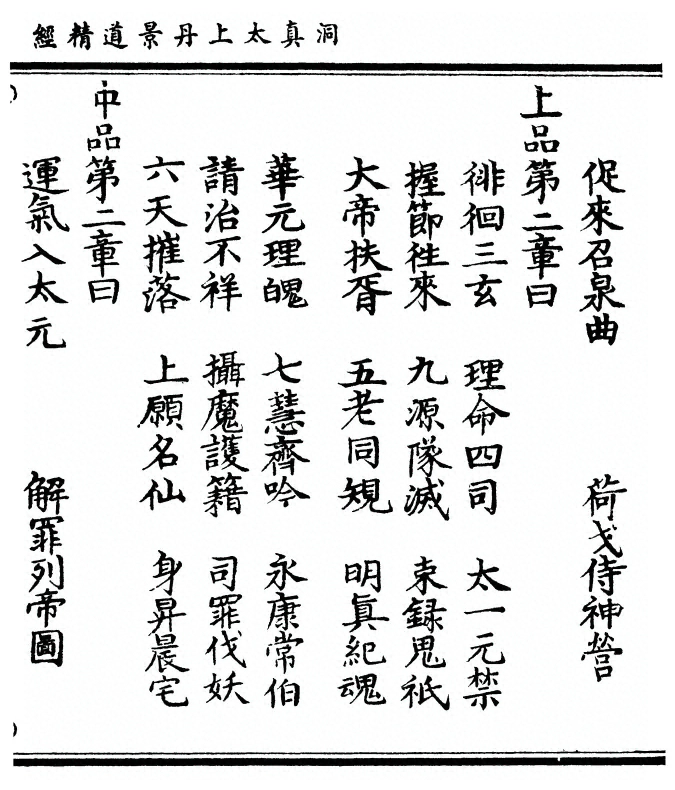 洞真太上丹景道精經
促來召泉曲　荷戈侍神營
上品第二章曰
徘徊三玄　理命四司　太一元禁
握節往來　九源隊滅　束錄鬼祇
大帝扶胥　五老同規　明真紀魂
華元理魄　七慧齊吟　永康常伯
請治不祥　攝魔護籍　司罪伐妖
六天摧落　上願名仙　身昇晨宅
中品第二章曰
運氣入太元　解罪列帝圖